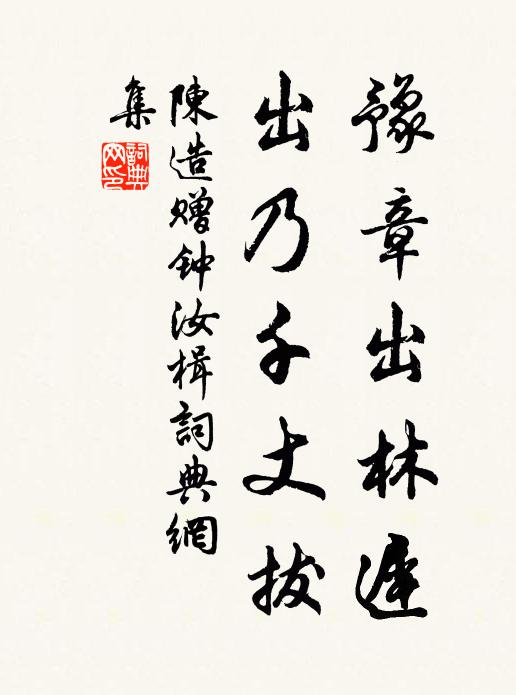 豫章出林遲
出乃千丈拔
陳造贈钟汝楫詞典網
集
詞典网印